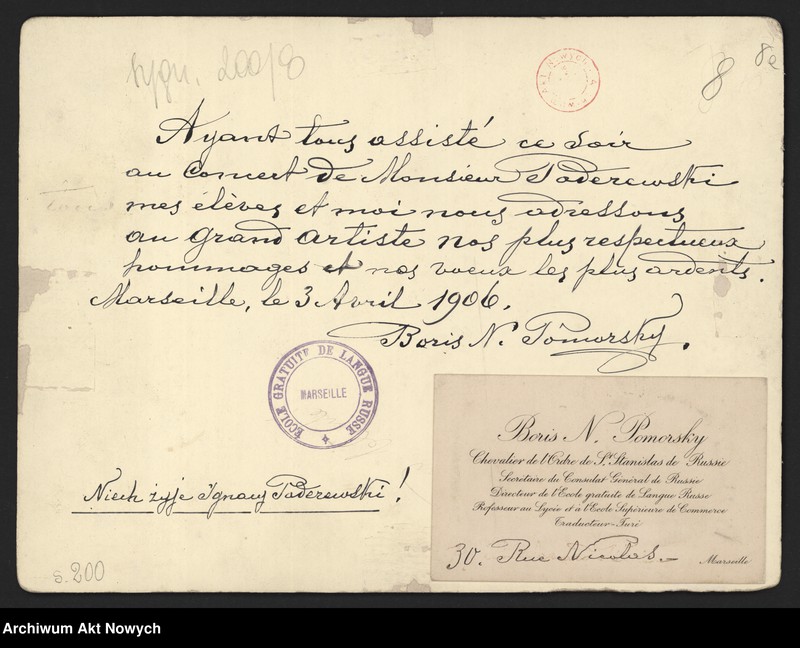 sygn. 200/8
8
8a
Ayant tous assisté ce soir
au Concert de Monsieur Paderewski
mes élèves et moi nous adressons
au grand artiste nos plus respectueux
hommages et nos voeux les plus ardents.
Marseille, le 3 Avril 1906.
Boris N. Pômorsky.
ÉCOLE GRATUITE DE LANGUE RUSSE
MARSEILLE
Boris N. Pomorsky
Chevalier de l'Ordre de St. Stanislas de Russie
Secrétaire du Consulat Général de Russie
Directeur de l'Ecole gratuite de Langue Russe
Professeur au Lycée et à l'Ecole Supérieure de Commerce
Traducteur-Juré
30. Rue Nicolas.
Marseille
Niech żyje Ignacy Paderewski!
s. 200
Archiwum Akt Nowych